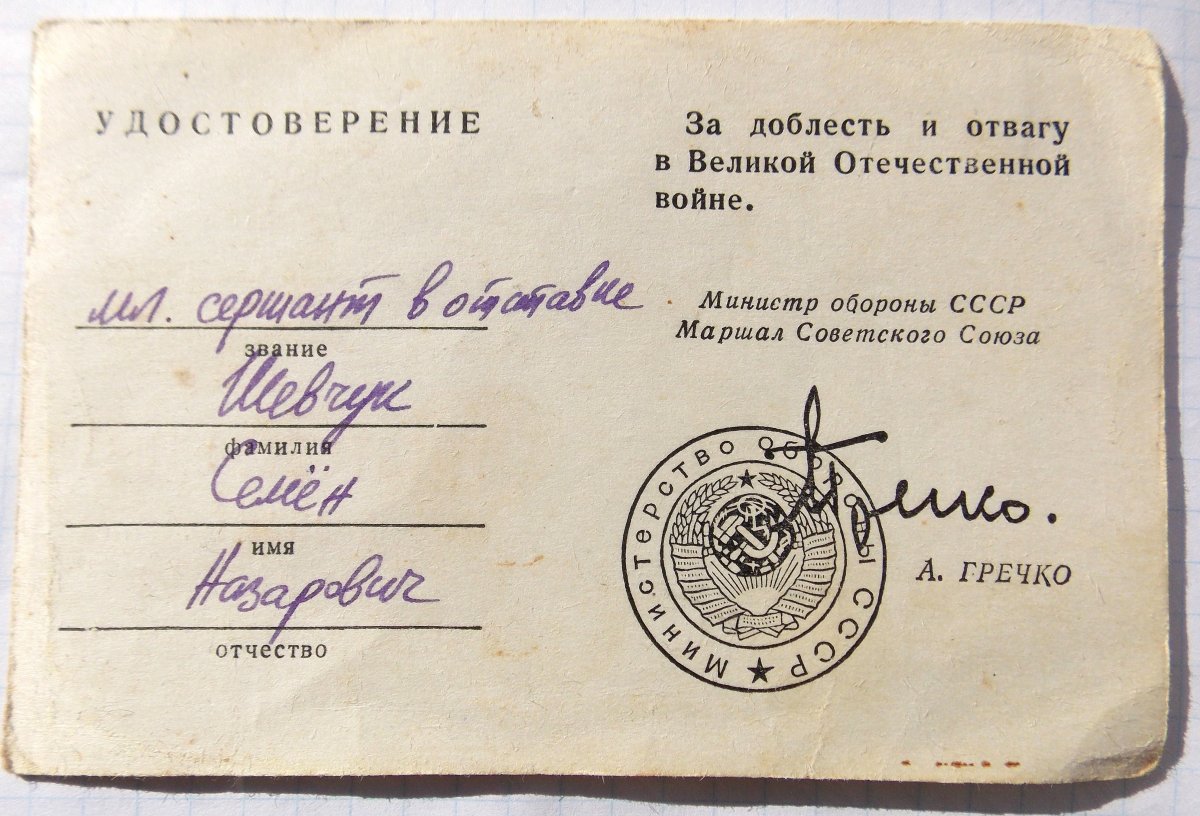 УДОСТОВЕРЕНИЕ
мл. сержант в отставке
звание
Шевчук
фамилия
Семён
имя
Назарович
отчество
За доблесть и отвагу
в Великой Отечественной
войне.
Министр обороны СССР
Маршал Советского Союза
Гречко.
МИНИСТЕРСТВО ОБОРОНЫ СССР
А. ГРЕЧКО